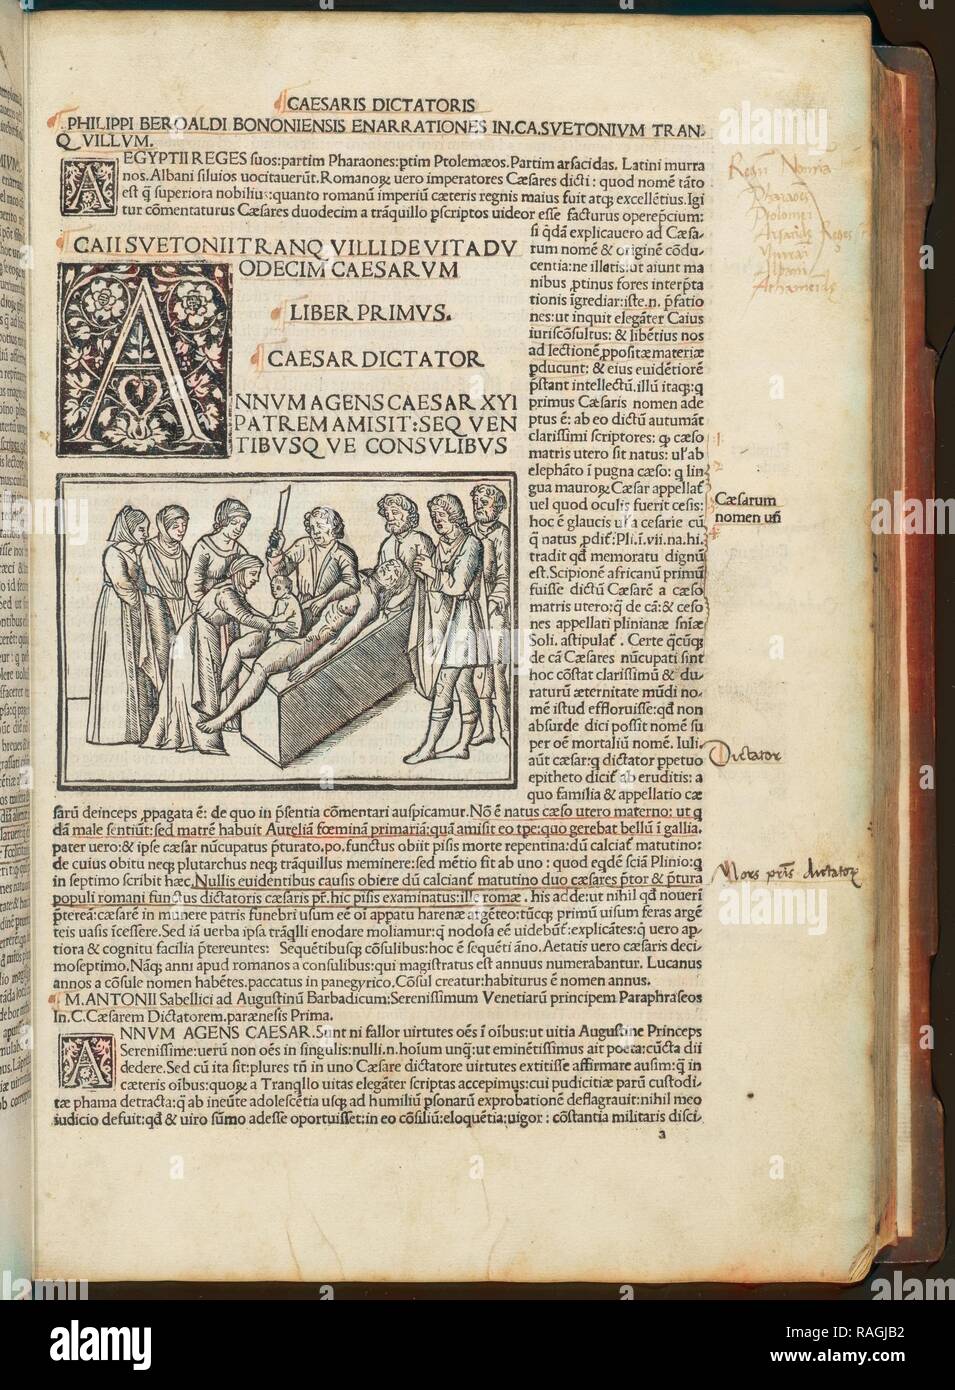 CAESARIS DICTATORIS
PHILIPPI BEROALDI BONONIENSIS ENARRATIONES IN.CA.SVETONIVM TRAN.
Q VILLVM.
AEGYPTII REGES suos:partim Pharaones:ptim Ptolemæos.Partim arsacidas. Latini murra
nos.Albani siluios uocitauerūt.Romanoꝝ uero imperatores Cæsares dicti: quod nomē tāto
est q̃ superiora nobilius:quanto romanū imperiū cæteris regnis maius fuit atqꝫ excellētius.Igi
tur cōmentaturus Cæsares duodecim a trāquillo pscriptos uideor esse facturus operepcium:
si q̃dā explicauero ad Cæsa-
rum nomē & originē cōdu-
centia:ne illatis:ut aiunt ma
nibus ꝓtinus fores interp̄ta
tionis īgrediar:iste.n. p̄fatio
nes:ut inquit elegāter Caius
iuriscōsultus: & libētius nos
ad lectionē ꝓpositæ materiæ
ꝓducunt: & eius euidētiorē
p̄stant intellectū.illū itaqꝫ:q
primus Cæsaris nomen ade
ptus ē: ab eo dictū autumāt
clarissimi scriptores: ꝙ cæso
matris utero sit natus: uł ab
elephāto ī pugna cæso: q lin
gua mauroꝝ Cæsar appellat̄
uel quod oculis fuerit cesis:
hoc ē glaucis uł a cesarie cū
q̃ natus ꝓdit̄:Pli.ī.vii.na.hi.
tradit qđ memoratu dignū
est.Scipionē africanū primū
fuisse dictū Cæsarē a cæso
matris utero:q̃ de cā:& ceso
nes appellati plinianæ sn̄iæ
Soli. astipulat̄ . Certe q̃cūqꝫ
de cā Cæsares nūcupati sint
hoc cōstat clarissimū & du-
raturū æternitate mūdi no-
mē istud effloruisse:qđ non
absurde dici possit nomē su
per oē mortaliū nomē. Iuli.
aūt cæsar:q dictator ppetuo
epitheto dicit̄ ab eruditis: a
quo familia & appellatio cæ
CAII SVETONII TRANQ VILLI DE VITA DV
ODECIM CAESARVM
LIBER PRIMVS.
CAESAR DICTATOR
ANNVM AGENS CAESAR XVI
PATREM AMISIT: SEQ VEN
TIBVSQ VE CONSVLIBVS
sarū deinceps ꝓpagata ē: de quo in p̄sentia cōmentari auspicamur.Nō ē natus cæso utero materno: ut q
dā male sentiūt:sed matrē habuit Aureliā fœminā primariā:quā amisit eo tpe:quo gerebat bellū ī gallia.
pater uero:& ipse cæsar nūcupatus p̄turato.po.functus obiit pisis morte repentina:dū calciat̄ matutino:
de cuius obitu neqꝫ plutarchus neqꝫ trāquillus meminere:sed mētio fit ab uno : quod eqdē sciā Plinio:q
in septimo scribit hæc.Nullis euidentibus causis obiere dū calciant̄ matutino duo cæsares p̄tor & p̄tura
populi romani functus dictatoris cæsaris pr̄. hic pisis examinatus:ille romæ . his adde:ut nihil qđ noueri
p̄tereā:cæsarē in munere patris funebri usum eē oī appatu harenæ argēteo:tūcqꝫ primū uisum feras argē
teis uasis īcessere.Sed iā uerba ipsa trāqlli enodare moliamur:q nodosa eē uidebūt̄:explicātes:q uero ap-
tiora & cognitu facilia p̄tereuntes: Sequētibusqꝫ cōsulibus:hoc ē sequēti āno.Aetatis uero cæsaris deci-
moseptimo.Nāqꝫ anni apud romanos a consulibus:qui magistratus est annuus numerabantur. Lucanus
annos a cōsule nomen habētes.paccatus in panegyrico.Cōsul creatur:habiturus ē nomen annus.
M.ANTONII Sabellici ad Augustinū Barbadicum:Serenissimum Venetiarū principem Paraphraseos
In.C.Cæsarem Dictatorem.parænesis Prima.
ANNVM AGENS CAESAR.Sunt ni fallor uirtutes oēs ī oībus:ut uitia Augustine Princeps
Serenissime:uerū non oēs in singulis:nulli.n.hoīum unq̄:ut eminētissimus ait poeta:cūcta dii
dedere.Sed cū ita sit:plures tn̄ in uno Cæsare dictatore uirtutes extitisse affirmare ausim:q̃ in
cæteris oībus:quoꝝ a Tranqllo uitas elegāter scriptas accepimus:cui pudicitiæ parū custodi-
tæ phama detracta:q̃ ab ineūte adolescētia usqꝫ ad humiliū psonarū exprobationē deflagrauit:nihil meo
iudicio defuit:qđ & uiro sūmo adesse oportuisset:in eo cōsiliū:eloquētia:uigor : cōstantia militaris disci-
a
Pharaones
Ptolomei
Cæsarum
nomen un̄
Dictator
Mors pr̄is dictator
alamy
Image ID: RAGJB2
www.alamy.com